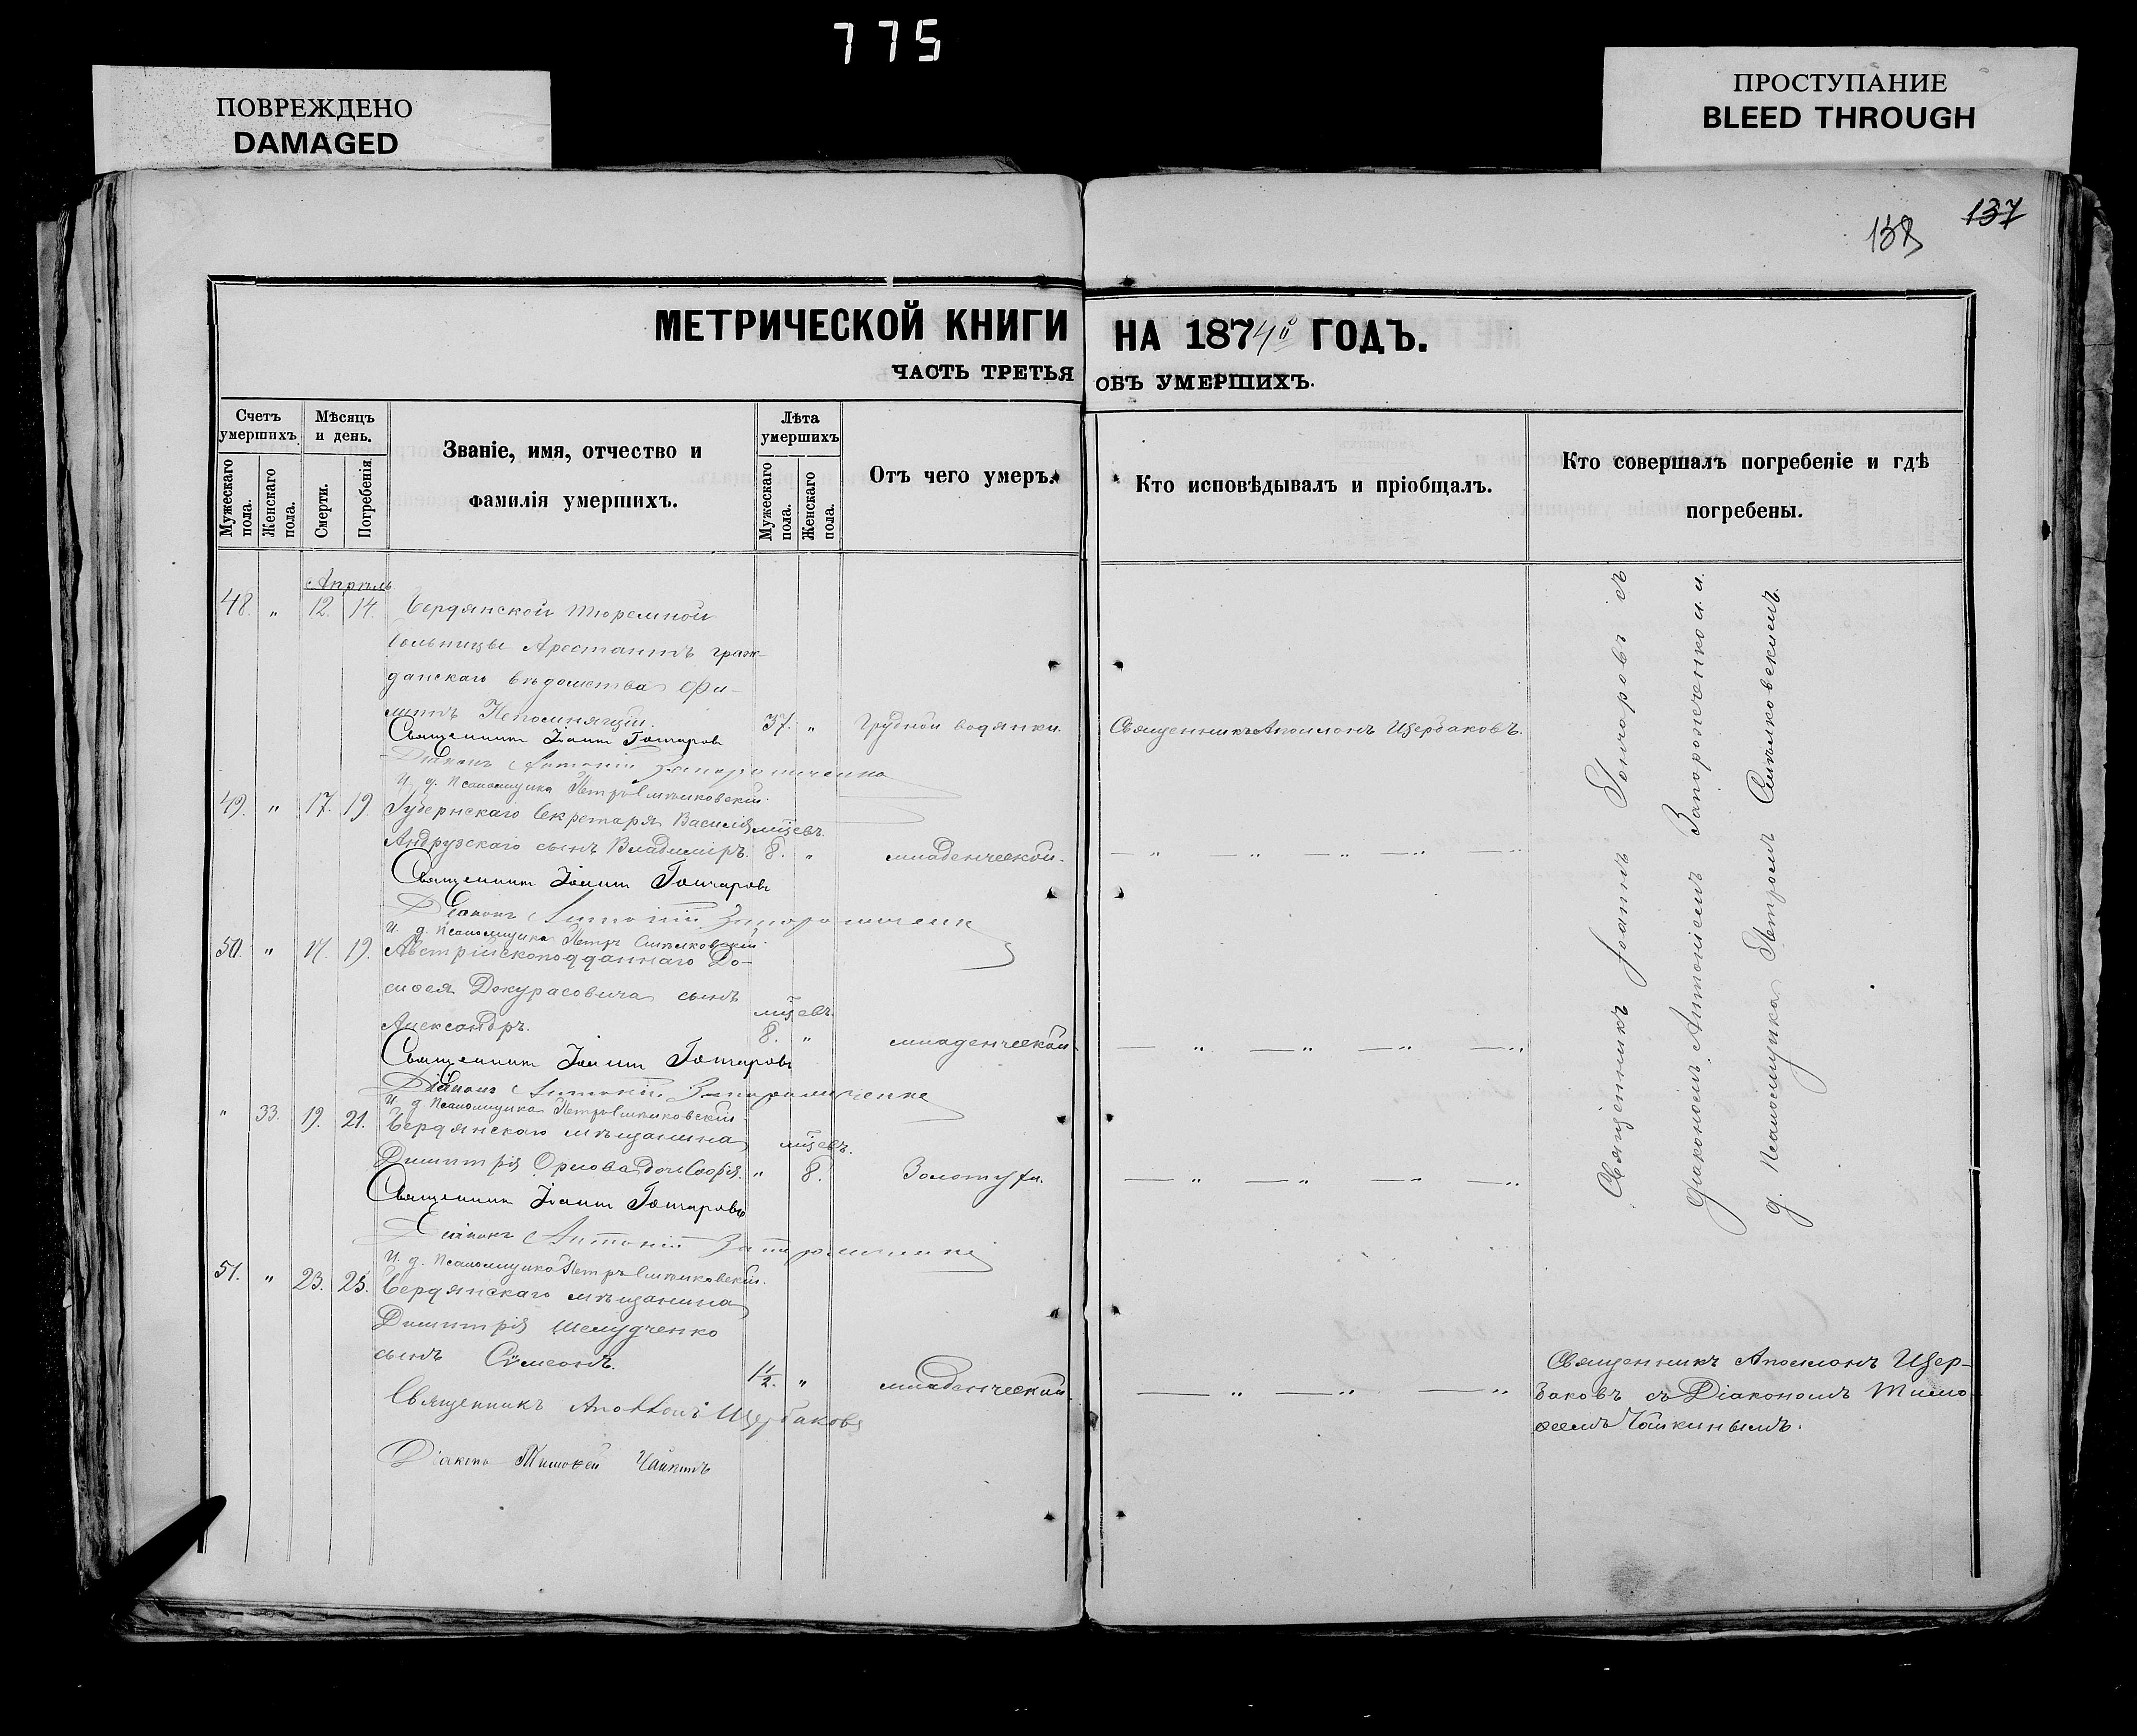 775
ПОВРЕЖДЕНО
DAMAGED
ПРОСТУПАНИЕ
BLEED THROUGH
137
138
МЕТРИЧЕСКОЙ КНИГИ НА 1874й ГОДЪ.
ЧАСТЬ ТРЕТЬЯ ОБЪ УМЕРШИХЪ.
Счетъ умершихъ.
Мужескаго пола.
Женскаго пола.
Мѣсяцъ и день.
Смерти.
Погребенія.
Званіе, имя, отчество и
фамилія умершихъ.
Лѣта умершихъ
Мужескаго пола.
Женскаго пола.
Отъ чего умеръ.
Кто исповѣдывалъ и пріобщалъ.
Кто совершалъ погребеніе и гдѣ
погребены.
Апрѣль
48. „ 12. 14. Бердянской тюремной
больницы Арестантъ граж-
данскаго вѣдомства Фи-
липпъ Непомнящій. 37. „ Грудной водянки. Священникъ Аполлонъ Щербаковъ.
Священникъ Іоаннъ Гончаровъ
Діаконъ Антоній Запорожченко
И. д. Псаломщика Петръ
49. „ 17. 19. Губернскаго Секретаря Василія мѣсцевъ.
Андрузскаго сынъ Владиміръ. 8. „ младенческой. — „ — „ — „ — „ — „
Священникъ Іоаннъ Гончаровъ
Діаконъ Антоній Запорожченко
И. д. Псаломщика Петръ
50. „ 17. 19. Австрійскоподданнаго До-
сиѳея Докурасовича сынъ мѣсцевъ.
Александръ. 8. „ младенческой. — „ — „ — „ — „
Священникъ Іоаннъ Гончаровъ
Діаконъ Антоній Запорожченко
И. д. Псаломщика Петръ
„ 33. 19. 21. Бердянскаго мѣщанина мѣсцевъ.
Димитрія Орлова дочь Софія. „ 8. Золотухи. — „ — „ — „ — „
Священникъ Іоаннъ Гончаровъ
Діаконъ Антоній Запорожченко
И. д. Псаломщика Петръ
51. „ 23. 25. Бердянскаго мѣщанина
Димитрія Шелудченко
сынъ Сѵмеонъ. 1½. „ младенческой. — „ — „ — „
Священникъ Аполлонъ Щербаковъ
Діаконъ Тимоѳей Чайкинъ
Священникъ Іоаннъ Гончаровъ съ
Діакономъ Антоніемъ Запорожченкомъ и.
д. Псаломщика Петромъ
Священникъ Аполлонъ Щер-
баковъ съ Діакономъ Тимо-
ѳеемъ Чайкинымъ.